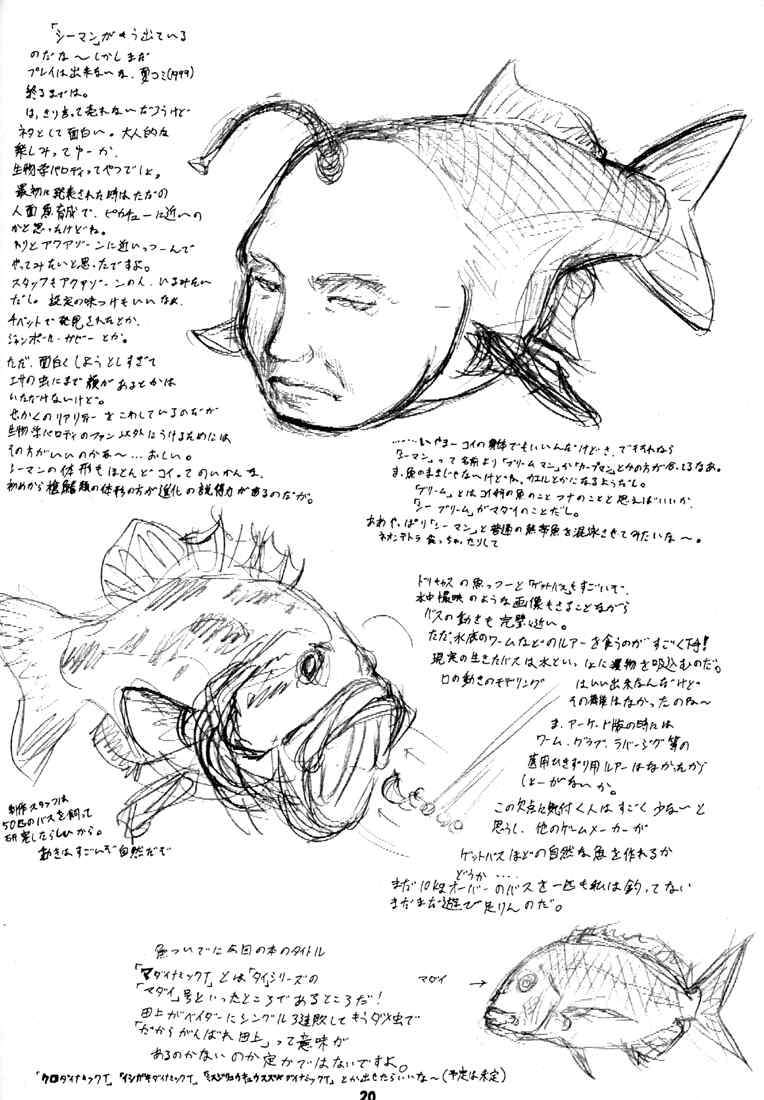 「シーマン」がもう出ている
のだな〜しかしまだ
プレイは出来ないな、夏コミ(1999)
終るまでは。
はっきり言って売れないだろうけど
ネタとして面白い。大人的な
楽しみってゆーか、
生物学パロディってやつでしょ。
最初に発表された時はただの
人面魚育成で、ピカチューに近いの
かと思ったけどね。
わりとアクアゾーンに近いっつーんで
やってみたいと思ったですよ。
スタッフもアクアゾーンの人、いるみたい
だし。設定の味つけもいいなよ
チベットで発見されたとか、
ジャンポール・ガゼーとか。
ただ、面白くしようとしすぎて
エサの虫にまで顔があるとかは
いただけないけど。
せっかくのリアリティーをこわしているのだが
生物学パロディのファン以外にうけるためには
その方がいいのかな〜…おしい。
シーマンの体形もほとんどコイってのいかんな、
初めから総鰭類の体形の方が進化の説得力があるのだが。
……いやまーコイの身体でもいいんだけどさ、ですすれなら
「シーマン」って名前より「ブリームマン」か「カープマン」とかの方が合ってるなあ。
ま、魚のままじゃないけどね。カエルとかになるようだし。
「ブリーム」とはコイ科の魚のこと フナのことと思えばいいか、
「シーブリーム」がマダイのことだし。
あおやっぱり「シーマン」と普通の熱帯魚を混泳させてみたいな〜。
ネオンテトラ食っちゃったりして
ドリキャスの魚っつーと「ゲットバス」もすごいで、
水中撮映のような画像もさることながら
バスの動きも完璧に近い。
ただ、水底のワームなどのルアーを食うのがすごく下手!
現実の生きたバスは水といっしょに獲物を吸込むのだ。
口の動きのモデリング
はいい出来なんだけど
その動作はなかったのね〜
ま、アーケード版の時には
ワーム、グラブ、ラバージグ等の
底用ひきずり用ルアーはなかったから
しょーがないか。
この欠点に気付く人はすごく少な〜と
思うし、他のゲームメーカーが
ゲットバスほどの自然な魚を作れるか
どうか….
まだ10kgオーバーのバスを一匹も私は釣ってない
まだまだ遊び足りんのだ。
制作スタッフは
50匹のバスを飼って
研究したらしいから。
動きはすごいぞ自然だぞ
魚ついでに今回の本のタイトル
「マダイナミックT」とは「タイ」シリーズの
「マダイ」号といったところであるところだ!
田上がベイダーにシングル3連敗してもうダメ虫で
「だからがんばれ田上」って意味が
あるのかないのか定かではないですよ。
マダイ →
「クロダイナミックT」「イシガキダイナミックT」 とか出せたらいいな〜(予定は未定)
20